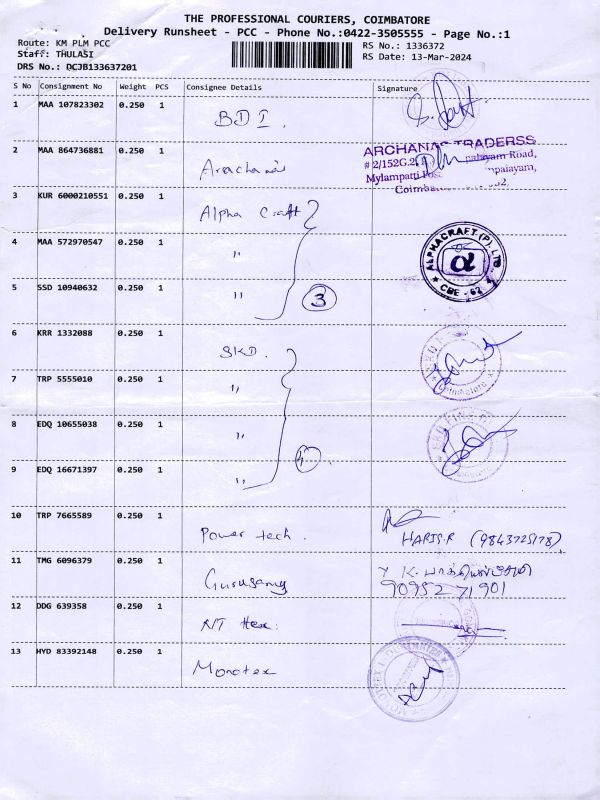 THE PROFESSIONAL COURIERS, COIMBATORE
Delivery Runsheet - PCC - Phone No.:0422-3505555 - Page No.:1
Route: KM PLM PCC
RS No.: 1336372
Staff: THULASI
RS Date: 13-Mar-2024
DRS No.: DCJB133637201
S No Consignment No Weight PCS Consignee Details Signature
1 MAA 107823302 0.250 1 BDI.
2 MAA 864736881 0.250 1
ARCHANAA TRADERSS
# 2/152G.2 palayam Road,
Mylampatti Post
Coimba
3 KUR 6000210551 0.250 1 Alpha Craft
4 MAA 572970547 0.250 1 "
ALPHACRAFT (P). LTD
α
CBE - 62
5 SSD 10940632 0.250 1 " 3
6 KRR 1332088 0.250 1 SKD.
7 TRP 5555010 0.250 1 "
8 EDQ 10655038 0.250 1 "
9 EDQ 16671397 0.250 1 " 4
10 TRP 7665589 0.250 1 Power tech.
HARIS.R
11 TMG 6096379 0.250 1 Gurusamy
90952 71901
12 DDG 639358 0.250 1
13 HYD 83392148 0.250 1 Monotex